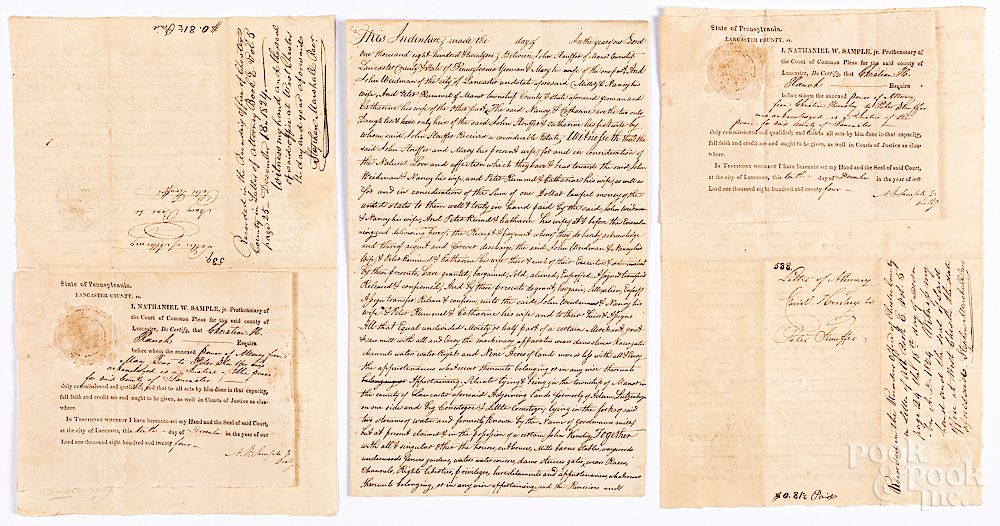 $0.81½ Paid
Recorded in the Recorders Office of Chester
County in Letter of Attorney Book E Vol 5
page 25 - December 18. 1824
Witness my hand and the Seal
of said office at West Chester
the day and year aforesaid
Stephen Marshall Recr
Mary Dore to
Peter Stouffer
539
State of Pennsylvania.
LANCASTER COUNTY, ss.
I, NATHANIEL W. SAMPLE, jr. Prothonotary of
the Court of Common Pleas for the said county of
Lancaster, Do Certify, that Christian H.
Rauch Esquire
before whom the annexed power of Attorney from
acknowledged is a Justice of the peace
for said County of Lancaster
duly commissioned and qualified; and that to all acts by him done in that capacity,
full faith and credit are and ought to be given, as well in Courts of Justice as else-
where.
IN TESTIMONY WHEREOF I have hereunto set my Hand and the Seal of said Court,
at the city of Lancaster, this day of December in the year of our
Lord one thousand eight hundred and twenty four
N W Sample Jr
Proty
This Indenture, made the day of In the year of our Lord
one thousand eight hundred & twenty Between John Stouffer of Manor township
Lancaster County & State of Pennsylvania Yeoman & Mary his wife of the one part And
John Weidman of the city of Lancaster and state aforesaid & Nancy his
wife, And Peter Rummel of Manor township County & State aforesaid yeoman and
Catharine his wife of the other part. The said Nancy & Catharine are the two only
Daughters & only heirs of the said John Stouffer & Catharine his first wife by
whom said John Stouffer Received a considerable Estate, Witnesseth that the
said John Stouffer and Mary his present wife, for and in consideration of
the Natural Love and affection which they have & bear towards the said John
Weidman & Nancy his wife, and Peter Rummel & Catharine his wife as well as
for and in consideration of the Sum of one Dollar lawful money of the
united states to them well & truly in hand paid by the said John Weidman
& Nancy his wife, And Peter Rummel & Catharine his wife at & before the Ensealing
and delivering hereof, the Receipt & payment whereof they do hereby acknowledge
and thereof acquit and forever discharge the said John Weidman & Nancy his
Wife, & Peter Rummel & Catharine his wife their & each of their Executors & administrators
by these presents, have granted, bargained, Sold, aliened, Enfeoffed, Assigned transfered
Released & confirmed, And by these presents do grant, bargain, Sell, alien, Enfeoff
Assign transfer, Release & confirm, unto the said John Weidman & Nancy his
wife, & Peter Rummel & Catharine his wife and to their Heirs & Assigns
All that Equal undivided Moiety or half part of a certain Merchant, grist &
saw mill with all and Every the machinery apparatus wears dams sluices flood gates
channels water water Rights and Nine Acres of land more or less with all & Every
the appurtenances whatsoever thereunto belonging or in any wise thereunto
Appertaining, Situate lying & being in the township of Manor in
the county of Lancaster aforesaid Adjoining lands formerly of Adam
on one side and big Conestogoe & Little Conestogoe, lying in the fork of said
two streams of water and formerly known by the Name of goodmans mills
but at present claimed & in the possession of a certain John Kendig Together
with all & singular other the houses, outhouses, Mills, barns Stables, ways woods
underwoods fences gardens, waters water courses, dams sluices gates, wears Races,
channels, Rights liberties, Priviledges, hereditaments and appurtenances whatsoever
thereunto belonging, or in any wise appertaining, and the Revisions and
State of Pennsylvania.
LANCASTER COUNTY, ss.
I, NATHANIEL W. SAMPLE, jr. Prothonotary of
the Court of Common Pleas for the said county of
Lancaster, Do Certify, that Christian H.
Rauch Esquire
before whom the annexed power of Attorney
from Christian Hershey to Peter Stouffer
was acknowledged is a Justice of the
peace for said County of Lancaster
duly commissioned and qualified; and that to all acts by him done in that capacity,
full faith and credit are and ought to be given, as well in Courts of Justice as else-
where.
IN TESTIMONY WHEREOF I have hereunto set my Hand and the Seal of said Court,
at the city of Lancaster, this tenth day of December in the year of our
Lord one thousand eight hundred and twenty four
N W Sample Jr
Proty
538
Letter of Attorney
Hershey
to
Peter Stouffer
Recorded in the Recorders Office of Chester County
in Letter of Att. Book E. Vol. 5
page 24 the 18th day of December
A.D. 1824. Witness my
hand and the Seal of
Office at West Chester the date
aforesaid. Stephen Marshall Recr
$0.81½ Paid
Pook
& Pook
Inc.